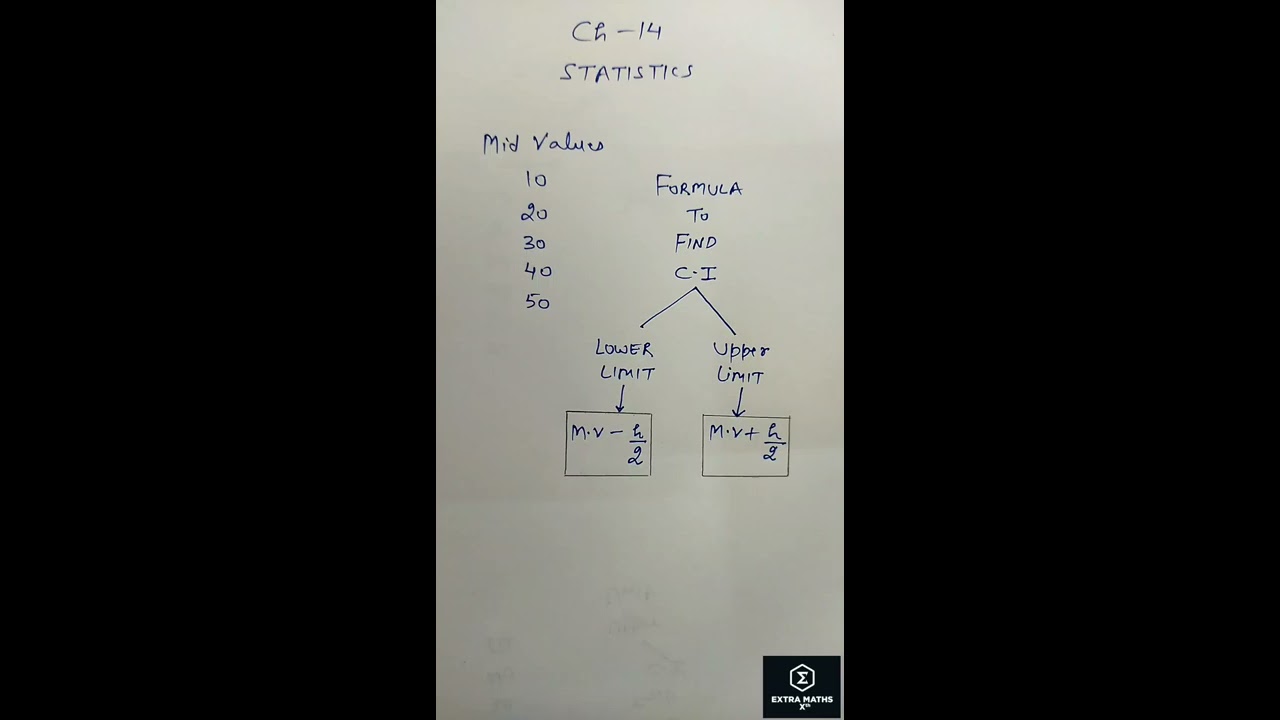 Ch - 14
STATISTICS
Mid Values
10
20
30
40
50
FORMULA
TO
FIND
C.I
LOWER
LIMIT
M.V - h/2
Upper
LIMIT
M.V + h/2
Σ
EXTRA MATHS
Xth